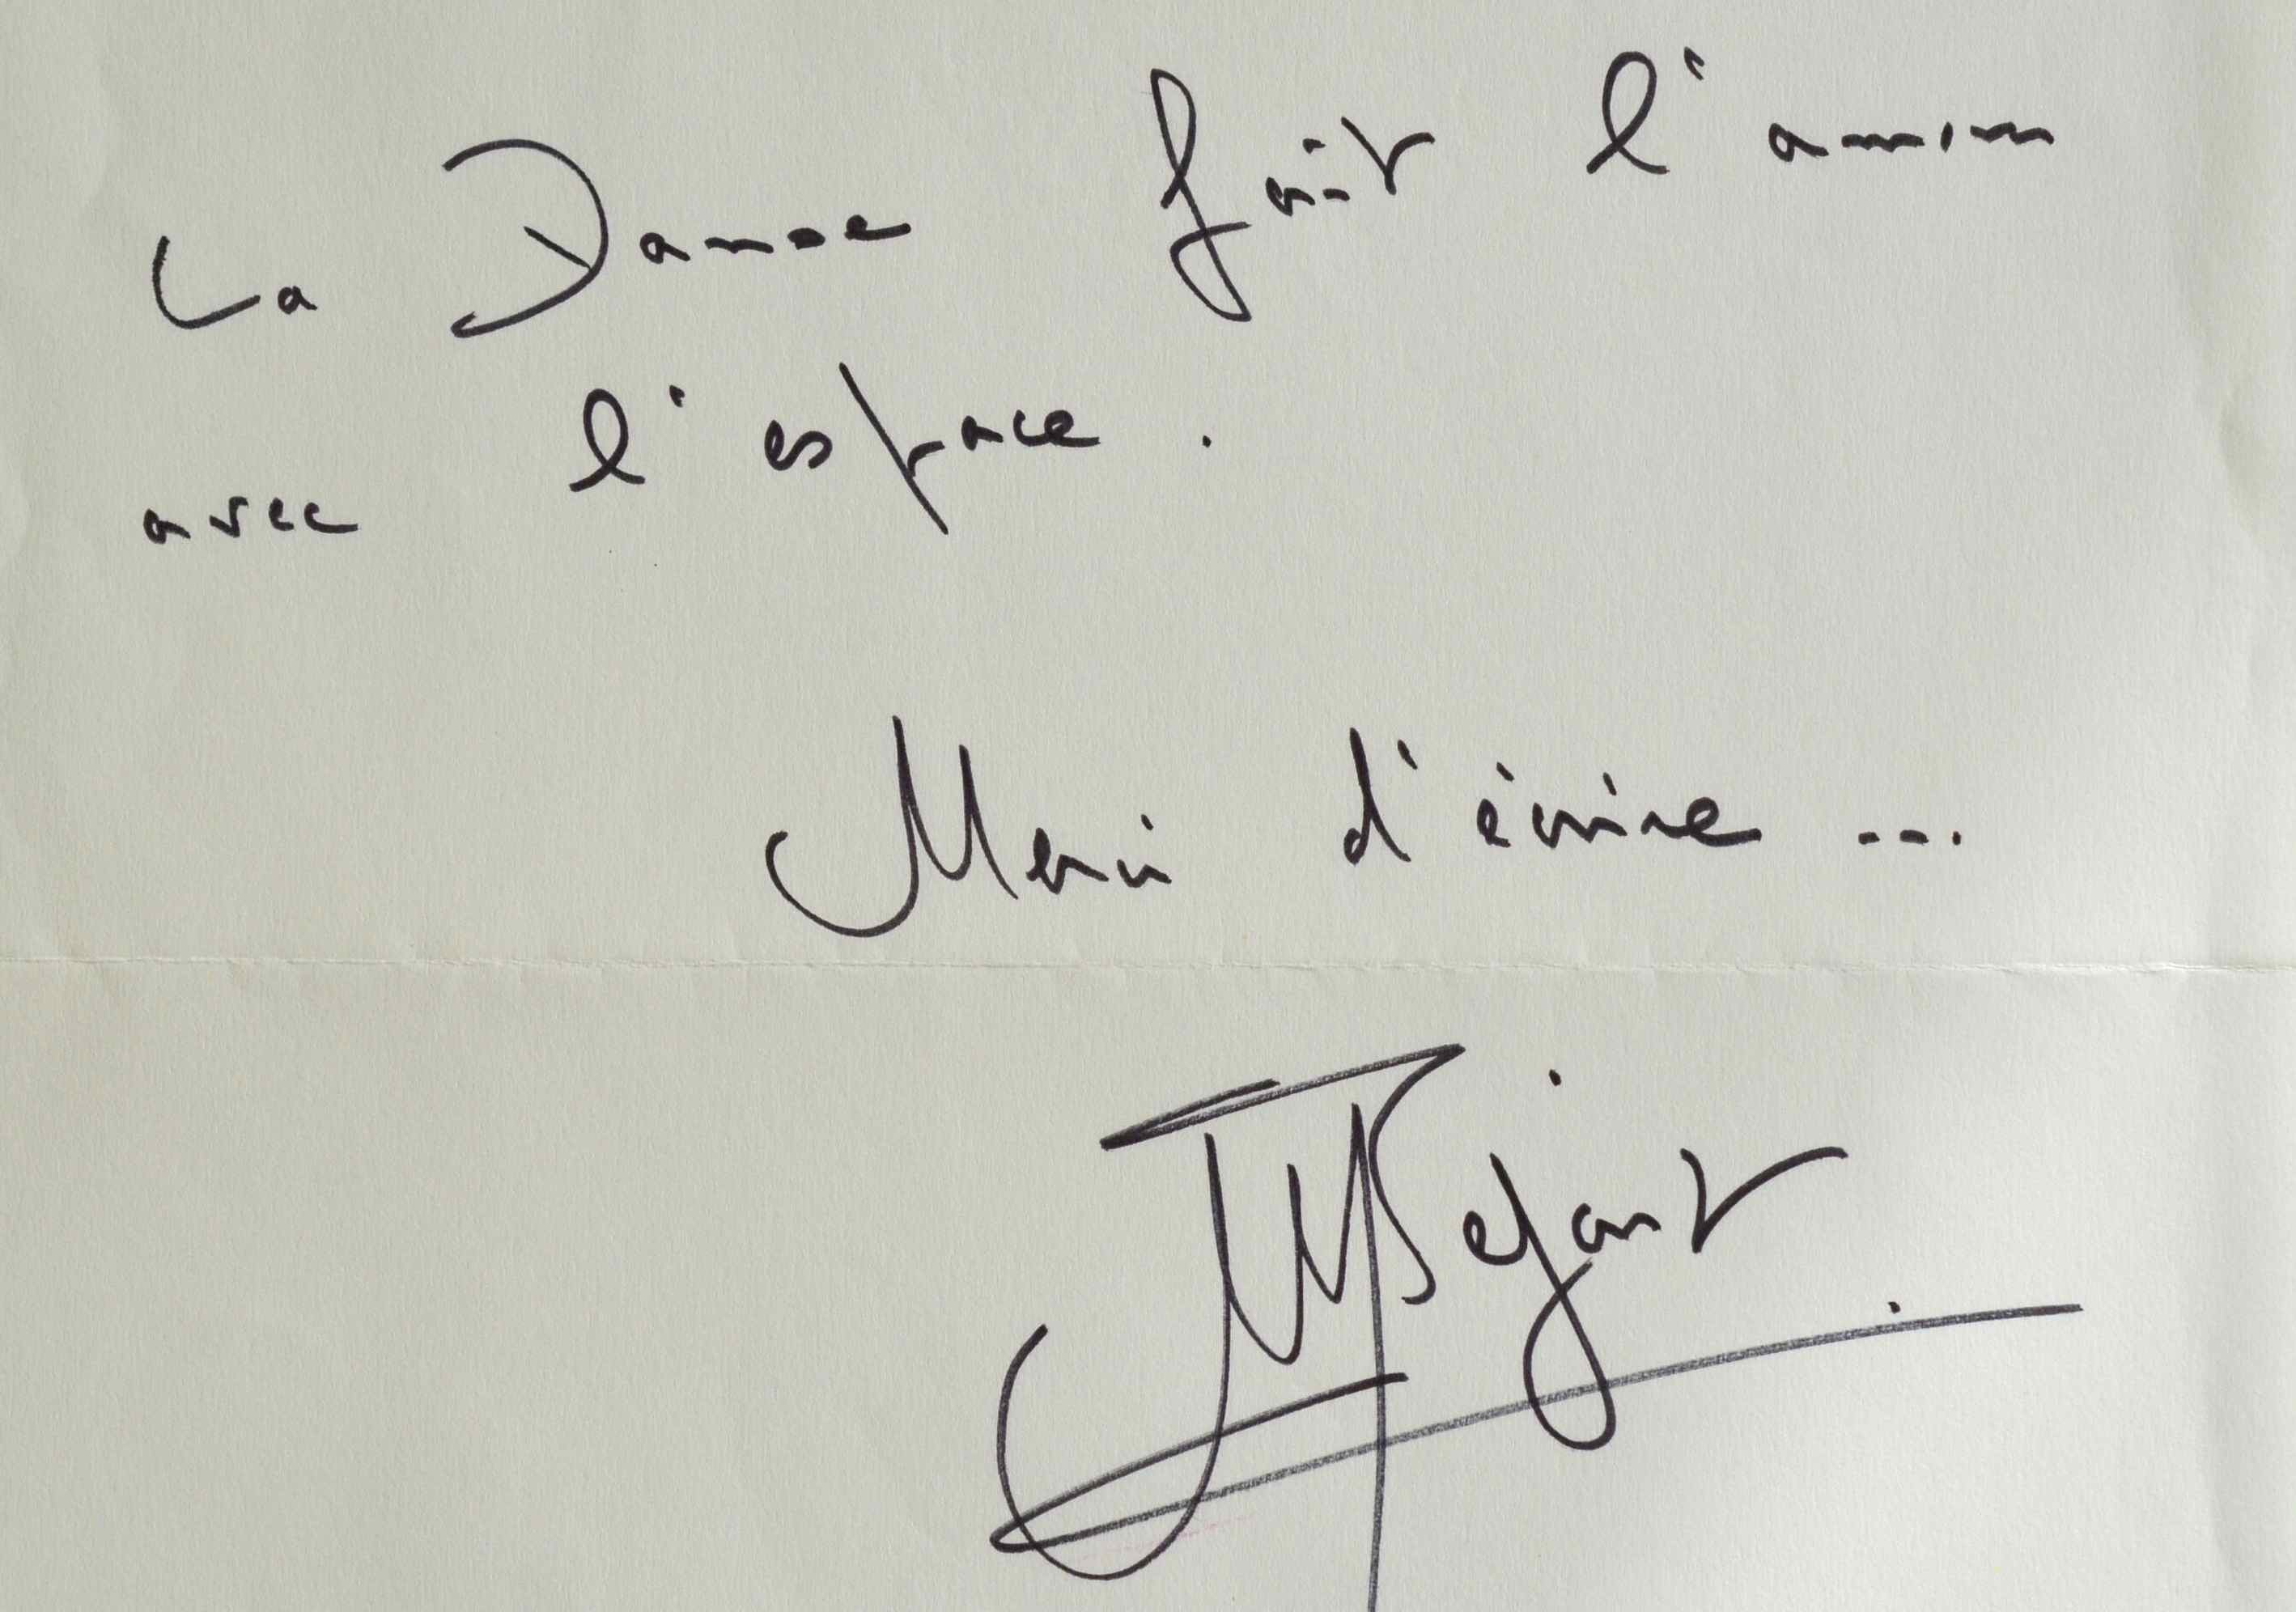 La Danse fait l'amour
avec l'espace.
Merci d'écrire ...
MBejart